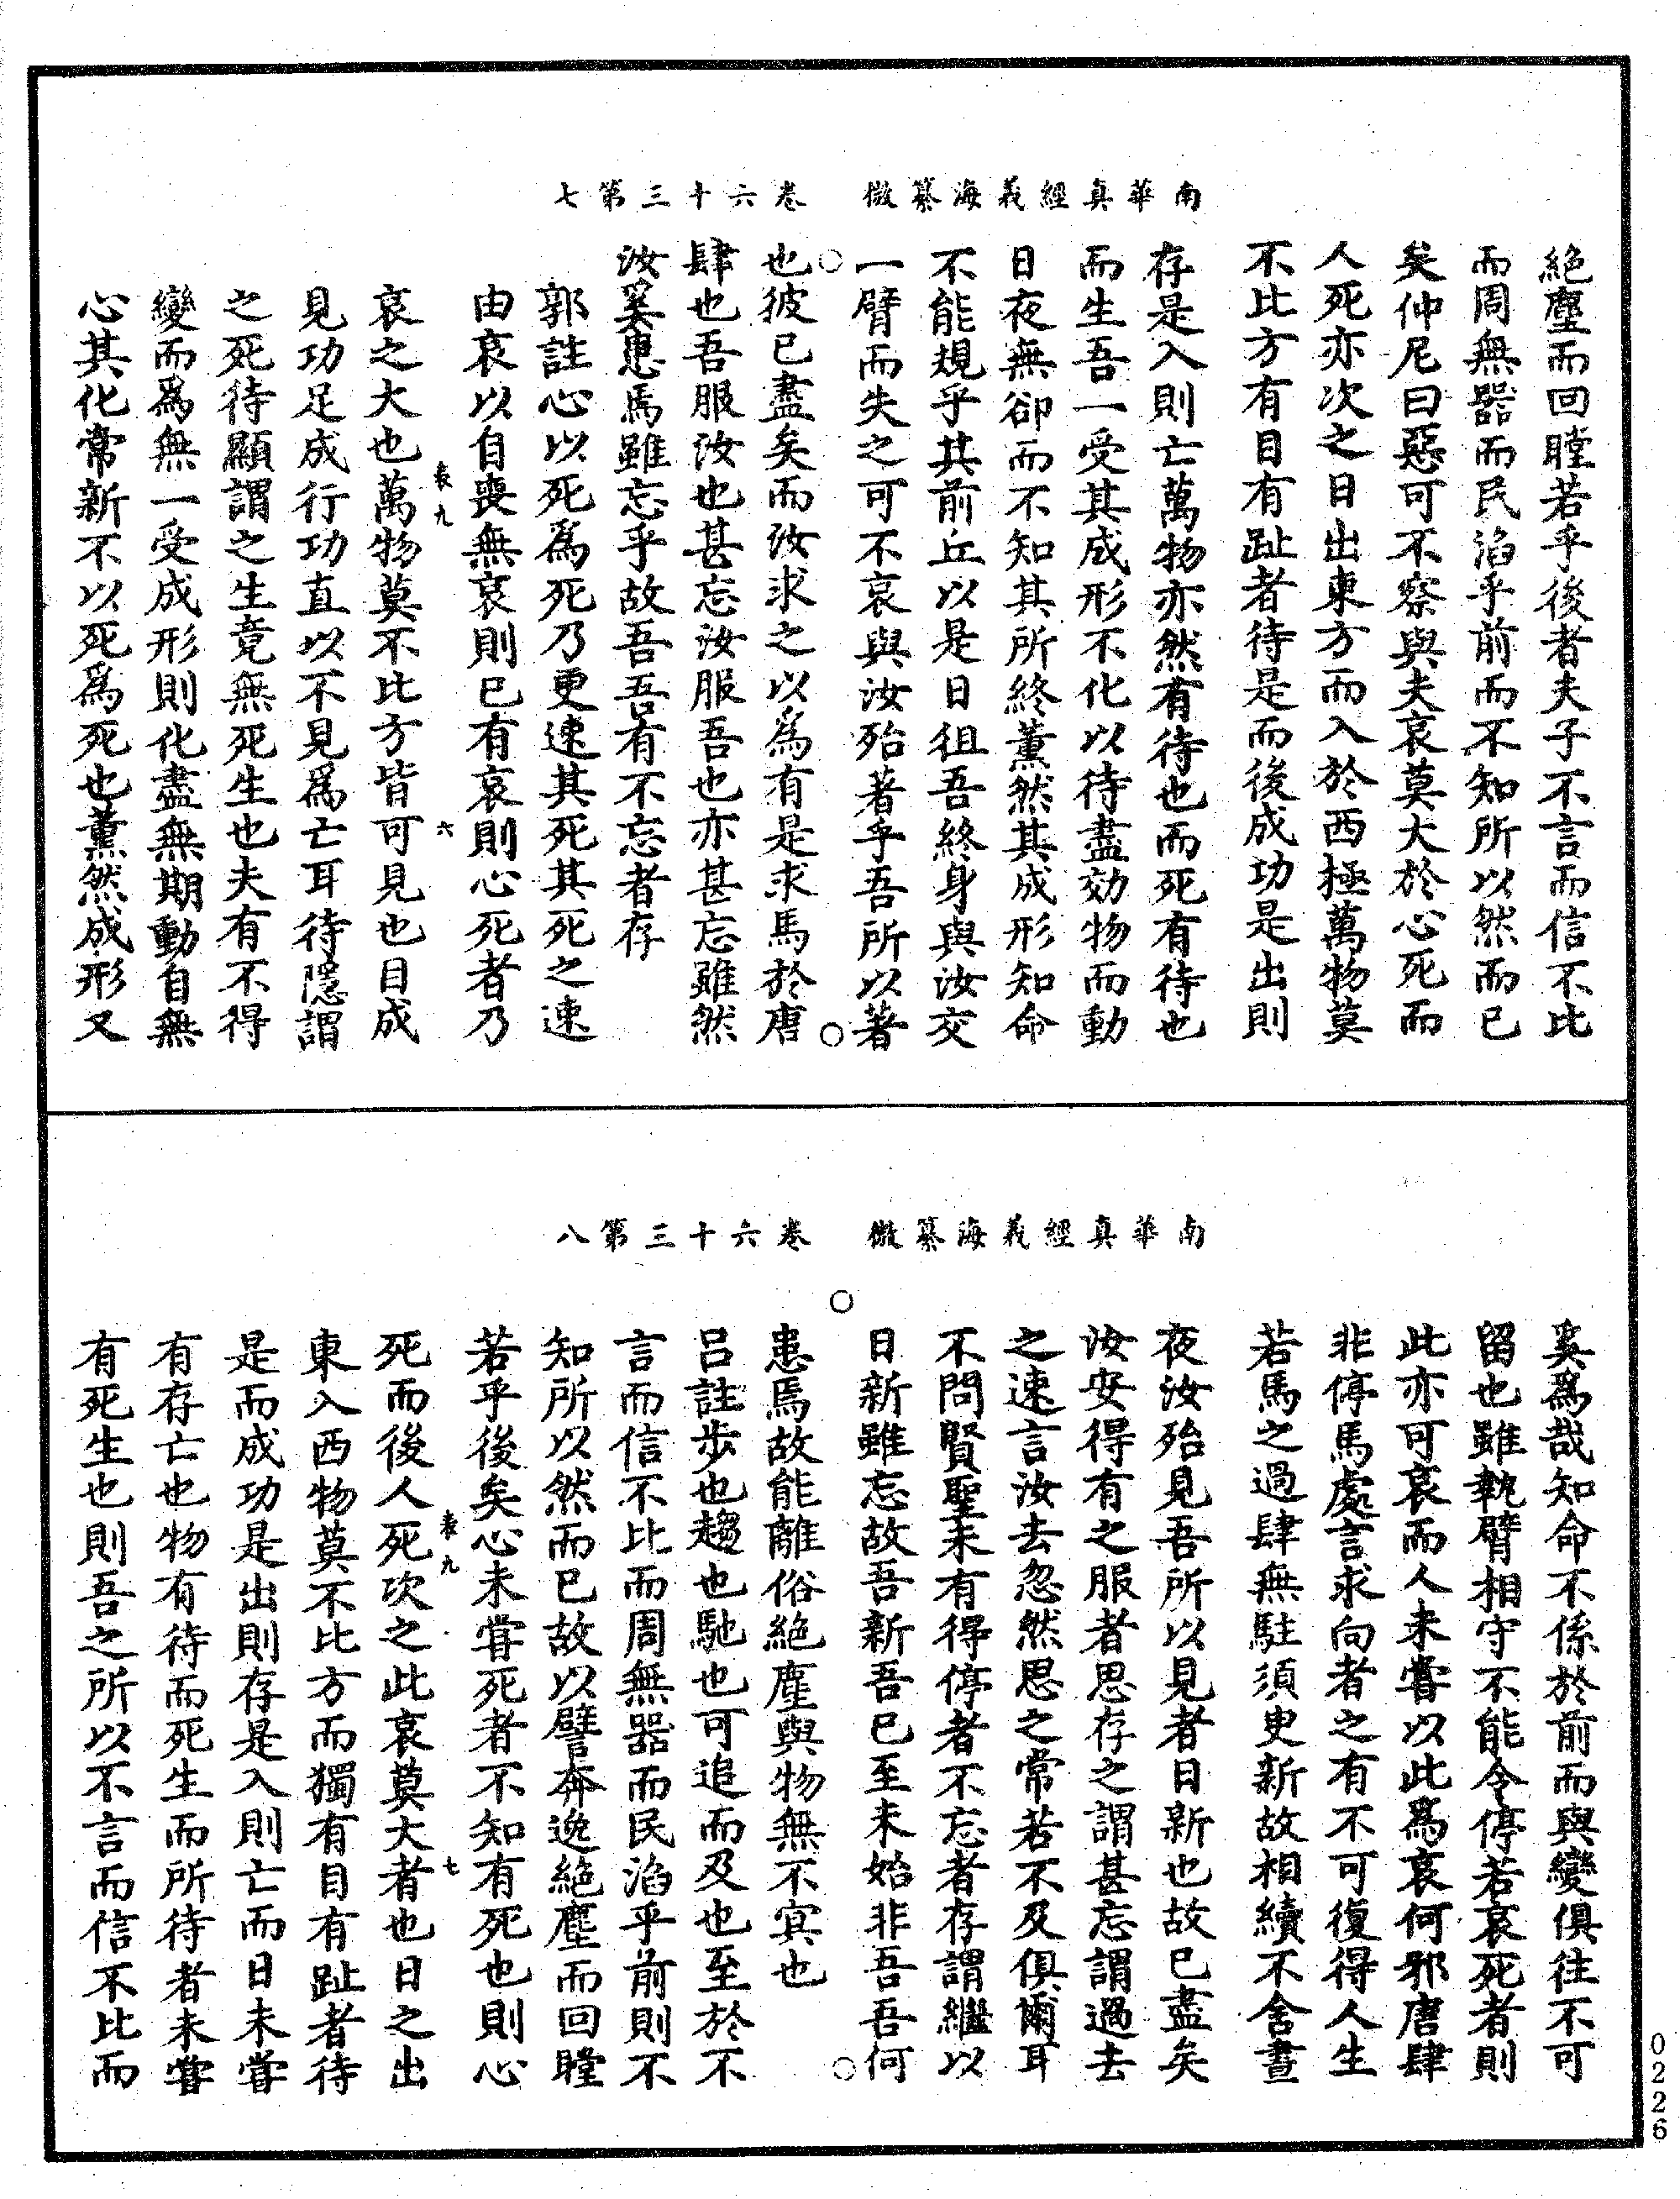 南華真經義海纂微　卷六十三第七
絕塵而回瞠若乎後者夫子不言而信不比
而周無器而民滔乎前而不知所以然而已
矣仲尼曰惡可不察與夫哀莫大於心死而
人死亦次之日出東方而入於西極萬物莫
不比方有目有趾者待是而後成功是出則
存是入則亡萬物亦然有待也而死有待也
而生吾一受其成形不化以待盡効物而動
日夜無郤而不知其所終薰然其成形知命
不能規乎其前丘以是日徂吾終身與汝交
一臂而失之可不哀與汝殆著乎吾所以著
也彼已盡矣而汝求之以為有是求馬於唐
肆也吾服汝也甚忘汝服吾也亦甚忘雖然
汝奚患焉雖忘乎故吾吾有不忘者存
郭註心以死爲死乃更速其死其死之速
由哀以自喪無哀則已有哀則心死者乃
袠九　六
哀之大也萬物莫不比方皆可見也目成
見功足成行功直以不見爲亡耳待隱謂
之死待顯謂之生竟無死生也夫有不得
變而爲無一受成形則化盡無期動自無
心其化常新不以死爲死也薰然成形又
南華真經義海纂微　卷六十三第八
奚爲哉知命不係於前而與變俱往不可
留也雖執臂相守不能令停若哀死者則
此亦可哀而人未嘗以此爲哀何邪唐肆
非停馬處言求向者之有不可復得人生
若馬之過肆無駐須臾新故相續不舍晝
夜汝殆見吾所以見者日新也故已盡矣
汝安得有之服者思存之謂甚忘謂過去
之速言汝去忽然思之常若不及俱爾耳
不問賢聖未有得停者不忘者存謂繼以
日新雖忘故吾新吾已至未始非吾吾何
患焉故能離俗絕塵與物無不冥也
呂註步也趨也馳也可追而及也至於不
言而信不比而周無器而民滔乎前則不
知所以然而已故以譬奔逸絕塵而回瞠
若乎後矣心未嘗死者不知有死也則心
袠九　七
死而後人死次之此哀莫大者也日之出
東入西物莫不比方而獨有目有趾者待
是而成功是出則存是入則亡而日未嘗
有存亡也物有待而死生而所待者未嘗
有死生也則吾之所以不言而信不比而
0226